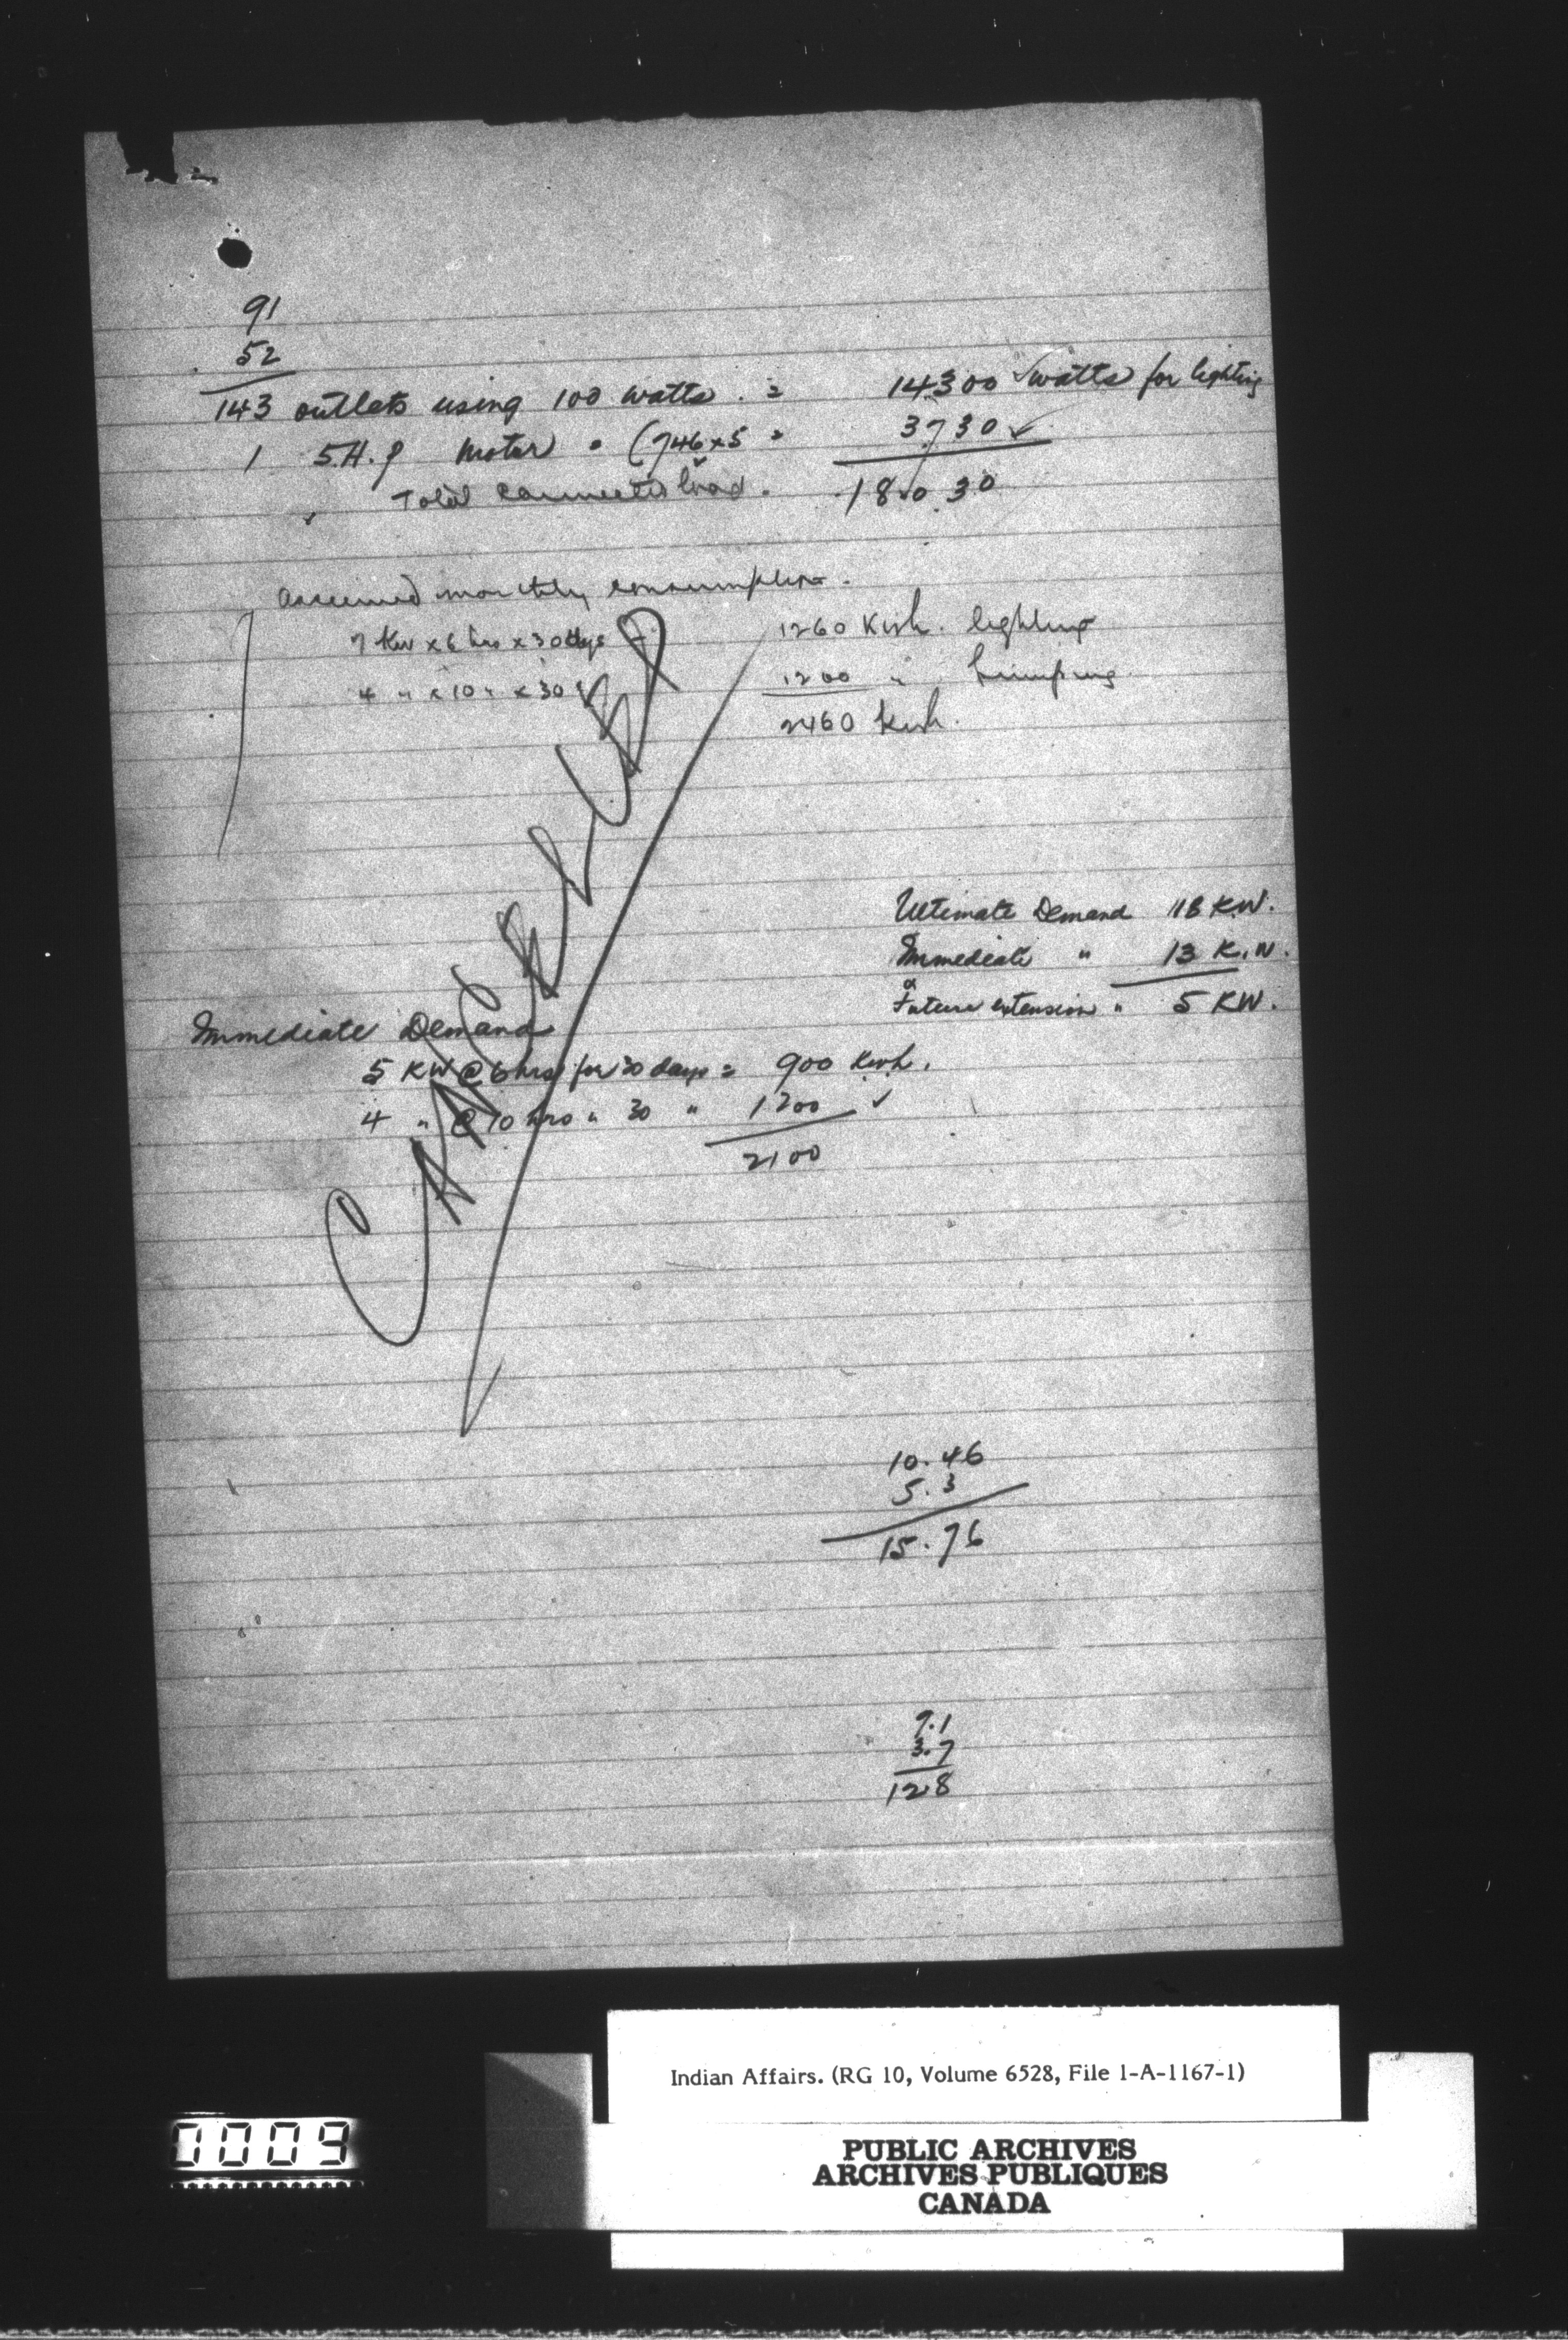 91
52
143 outlets using 100 watts. = 14300 ✓ watts for lighting
1 5.H.P Motor = (746x5 = 3730 ✓
Total connected load. 18030
Assumed monthly consumption.
7 Kw x 6 hrs x 30 dys = 1260 Kwh. lighting
4 " x 10 " x 30 1200 " Pumping
2460 Kwh.
CANCELLED
Ultimate Demand 18 K.W.
Immediate " 13 K.W.
Future extension " 5 KW.
Immediate Demand
5 KW @ 6 hrs for 30 days = 900 Kwh.
4 " @ 10 hrs " 30 " 1200 ✓
2100
10.46
5.3
15.76
9.1
3.7
12.8
Indian Affairs. (RG 10, Volume 6528, File 1-A-1167-1)
0009
PUBLIC ARCHIVES
ARCHIVES PUBLIQUES
CANADA